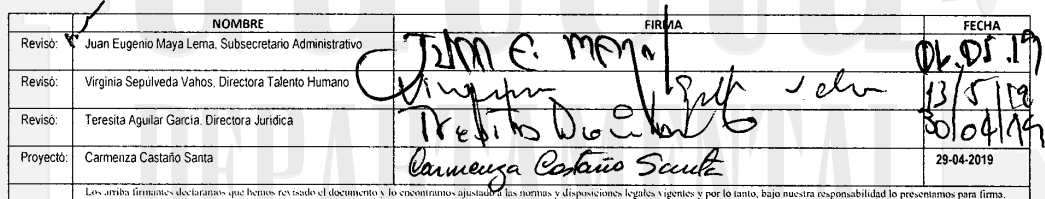 NOMBRE FIRMA FECHA
Revisó: Juan Eugenio Maya Lema, Subsecretario Administrativo JUAN E. MAYA 06.05.19
Revisó: Virginia Sepúlveda Vahos, Directora Talento Humano Virginia 13/5/19
Revisó: Teresita Aguilar García. Directora Jurídica Teresita Aguilar G 30/04/19
Proyectó: Carmenza Castaño Santa Carmenza Castaño Santa 29-04-2019
Los arriba firmantes declaramos que hemos revisado el documento y lo encontramos ajustado a las normas y disposiciones legales vigentes y por lo tanto, bajo nuestra responsabilidad lo presentamos para firma.